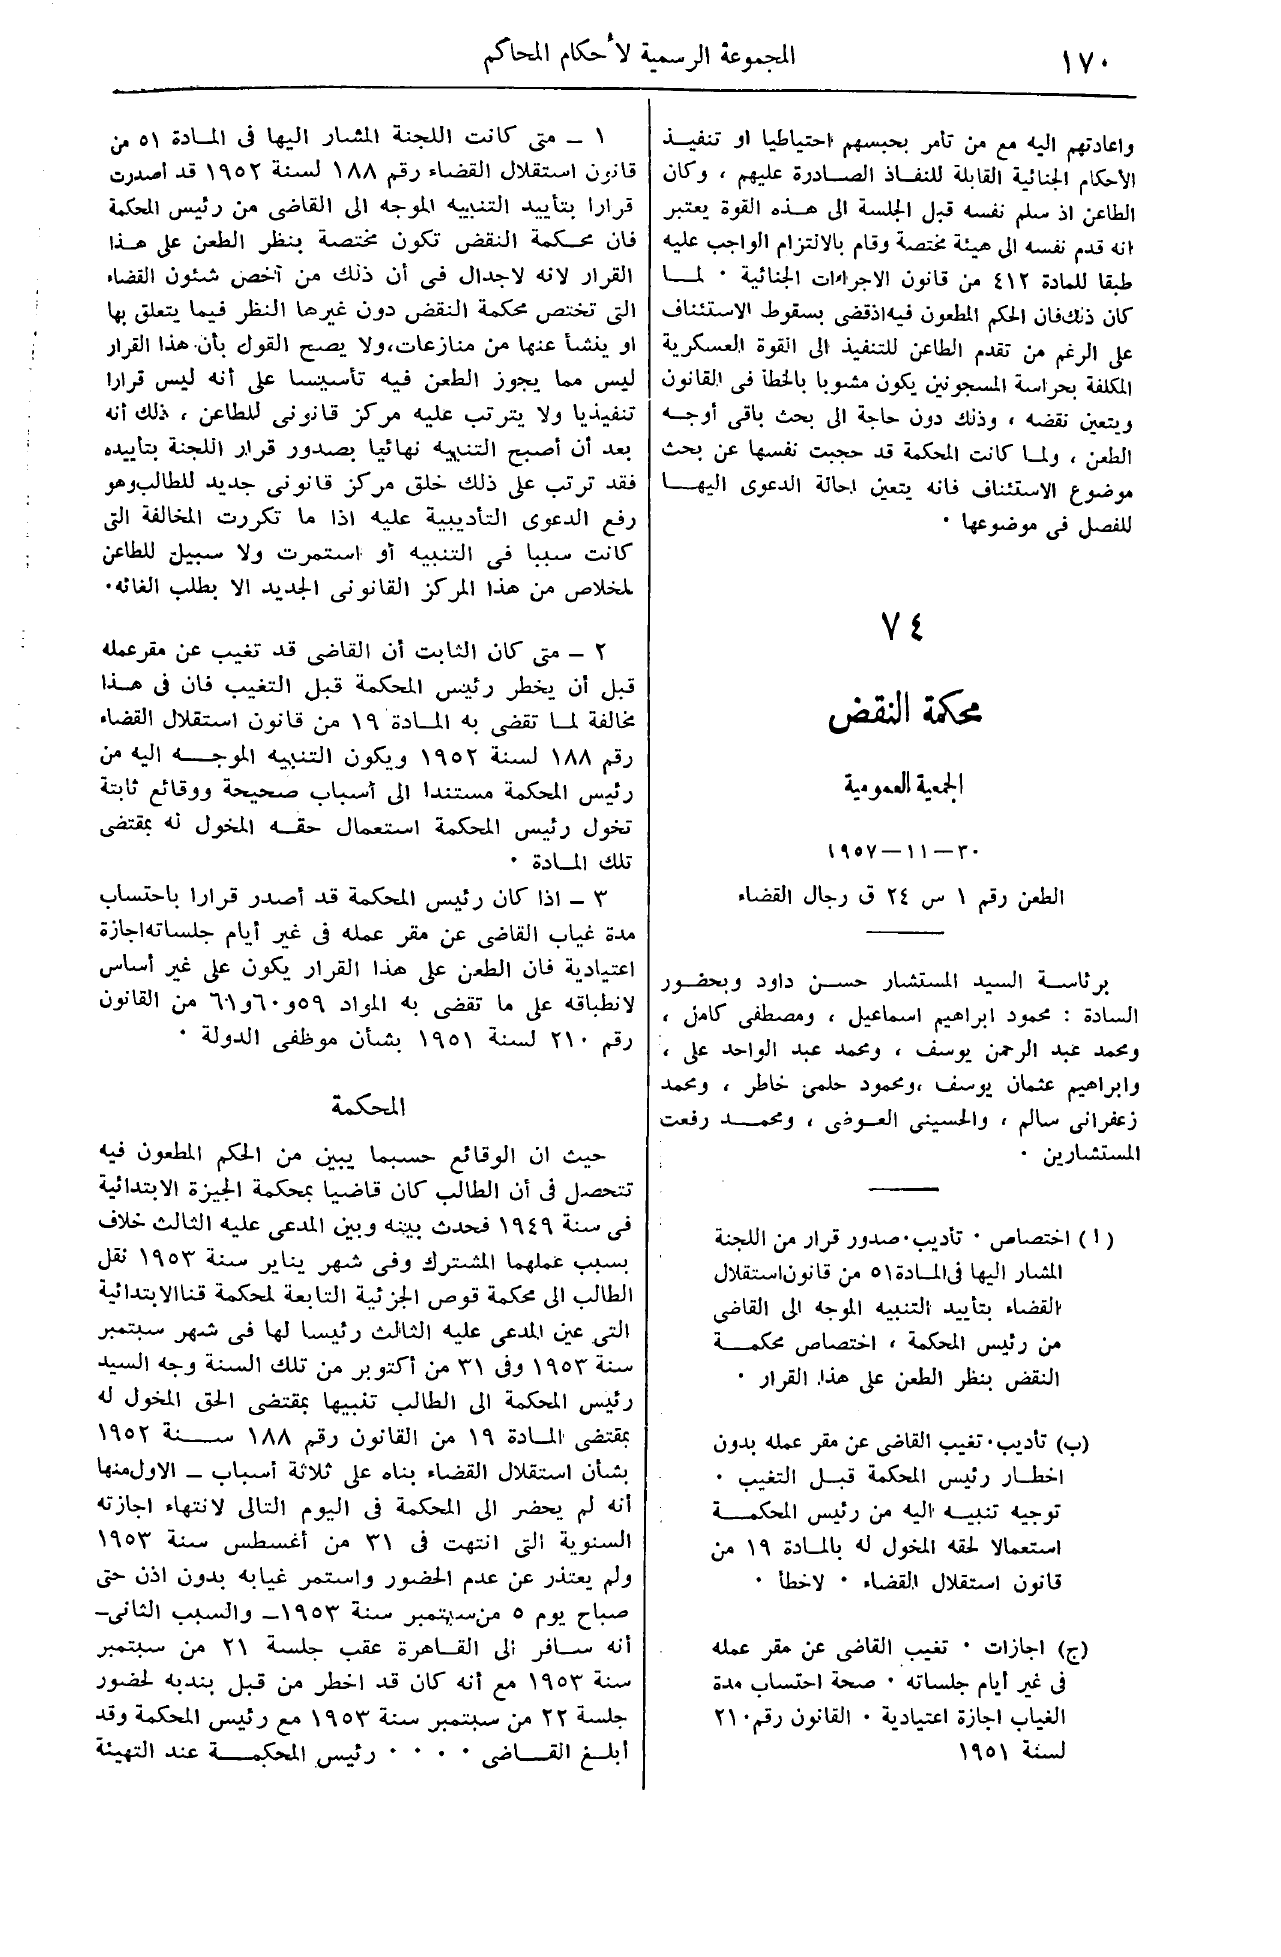 ١٧٠
المجموعة الرسمية لأحكام المحاكم
واعادتهم اليه مع من تأمر بحبسهم احتياطيا او تنفيذ
الاحكام الجنائية القابلة للنفاذ الصادرة عليهم ، وكان
الطاعن اذ سلم نفسه قبل الجلسة الى هذه القوة يعتبر
انه قدم نفسه الى هيئة مختصة وقام بالالتزام الواجب عليه
طبقا للمادة ٤١٢ من قانون الاجراءات الجنائية ٠ لما
كان ذلك فان الحكم المطعون فيه اذ قضى بسقوط الاستئناف
على الرغم من تقدم الطاعن للتنفيذ الى القوة العسكرية
المكلفة بحراسة المسجونين يكون مشوبا بالخطأ فى القانون
ويتعين نقضه ، وذلك دون حاجة الى بحث باقى أوجه
الطعن ، ولما كانت المحكمة قد حجبت نفسها عن بحث
موضوع الاستئناف فانه يتعين احالة الدعوى اليها
للفصل فى موضوعها ٠
٧٤
محكمة النقض
الجمعية العمومية
٣٠ – ١١ – ١٩٥٧
الطعن رقم ١ س ٢٤ ق رجال القضاء
برئاسة السيد المستشار حسن داود وبحضور
السادة : محمود ابراهيم اسماعيل ، ومصطفى كامل ،
ومحمد عبد الرحمن يوسف ، ومحمد عبد الواحد على ،
وابراهيم عثمان يوسف ،ومحمود حلمى خاطر ، ومحمد
زعفرانى سالم ، والحسينى العوضى ، ومحمد رفعت
المستشارين ٠
(ا) اختصاص ٠ تأديب ٠ صدور قرار من اللجنة
المشار اليها فى المادة ٥١ من قانون استقلال
القضاء بتأييد التنبيه الموجه الى القاضى
من رئيس المحكمة ، اختصاص محكمة
النقض بنظر الطعن على هذا القرار ٠
(ب) تأديب ٠ تغيب القاضى عن مقر عمله بدون
اخطار رئيس المحكمة قبل التغيب ٠
توجيه تنبيه اليه من رئيس المحكمة
استعمالا لحقه المخول له بالمادة ١٩ من
قانون استقلال القضاء ٠ لاخطأ ٠
(ج) اجازات ٠ تغيب القاضى عن مقر عمله
فى غير أيام جلساته ٠ صحة احتساب مدة
الغياب اجازة اعتيادية ٠ القانون رقم ٢١٠
لسنة ١٩٥١
١ – متى كانت اللجنة المشار اليها فى المادة ٥١ من
قانون استقلال القضاء رقم ١٨٨ لسنة ١٩٥٢ قد أصدرت
قرارا بتأييد التنبيه الموجه الى القاضى من رئيس المحكمة
فان محكمة النقض تكون مختصة بنظر الطعن على هذا
القرار لانه لاجدال فى أن ذلك من أخص شئون القضاء
التى تختص محكمة النقض دون غيرها النظر فيما يتعلق بها
او ينشأ عنها من منازعات،ولا يصح القول بأن هذا القرار
ليس مما يجوز الطعن فيه تأسيسا على أنه ليس قرارا
تنفيذيا ولا يترتب عليه مركز قانونى للطاعن ، ذلك أنه
بعد أن أصبح التنبيه نهائيا بصدور قرار اللجنة بتأييده
فقد ترتب على ذلك خلق مركز قانونى جديد للطالب وهو
رفع الدعوى التأديبية عليه اذا ما تكررت المخالفة التى
كانت سببا فى التنبيه أو استمرت ولا سبيل للطاعن
لخلاص من هذا المركز القانونى الجديد الا بطلب الغائه٠
٢ – متى كان الثابت أن القاضى قد تغيب عن مقر عمله
قبل أن يخطر رئيس المحكمة قبل التغيب فان فى هذا
مخالفة لما تقضى به المادة ١٩ من قانون استقلال القضاء
رقم ١٨٨ لسنة ١٩٥٢ ويكون التنبيه الموجه اليه من
رئيس المحكمة مستندا الى أسباب صحيحة ووقائع ثابتة
تخول رئيس المحكمة استعمال حقه المخول له بمقتضى
تلك المادة ٠
٣ – اذا كان رئيس المحكمة قد أصدر قرارا باحتساب
مدة غياب القاضى عن مقر عمله فى غير أيام جلساته اجازة
اعتيادية فان الطعن على هذا القرار يكون على غير أساس
لانطباقه على ما تقضى به المواد ٥٩ و٦٠ و٦١ من القانون
رقم ٢١٠ لسنة ١٩٥١ بشأن موظفى الدولة ٠
المحكمة
حيث ان الوقائع حسبما يبين من الحكم المطعون فيه
تتحصل فى أن الطالب كان قاضيا بمحكمة الجيزة الابتدائية
فى سنة ١٩٤٩ فحدث بينه وبين المدعى عليه الثالث خلاف
بسبب عملهما المشترك وفى شهر يناير سنة ١٩٥٣ نقل
الطالب الى محكمة قوص الجزئية التابعة لمحكمة قنا الابتدائية
التى عين المدعى عليه الثالث رئيسا لها فى شهر سبتمبر
سنة ١٩٥٣ وفى ٣١ من أكتوبر من تلك السنة وجه السيد
رئيس المحكمة الى الطالب تنبيها بمقتضى الحق المخول له
بمقتضى المادة ١٩ من القانون رقم ١٨٨ سنة ١٩٥٢
بشأن استقلال القضاء بناه على ثلاثة أسباب – الاول منها
أنه لم يحضر الى المحكمة فى اليوم التالى لانتهاء اجازته
السنوية التى انتهت فى ٣١ من أغسطس سنة ١٩٥٣
ولم يعتذر عن عدم الحضور واستمر غيابه بدون اذن حتى
صباح يوم ٥ من سبتمبر سنة ١٩٥٣– والسبب الثانى–
أنه سافر الى القاهرة عقب جلسة ٢١ من سبتمبر
سنة ١٩٥٣ مع أنه كان قد اخطر من قبل بندبه لحضور
جلسة ٢٢ من سبتمبر سنة ١٩٥٣ مع رئيس المحكمة وقد
أبلغ القاضى ٠ ٠ ٠ ٠ رئيس المحكمة عند التهيئة